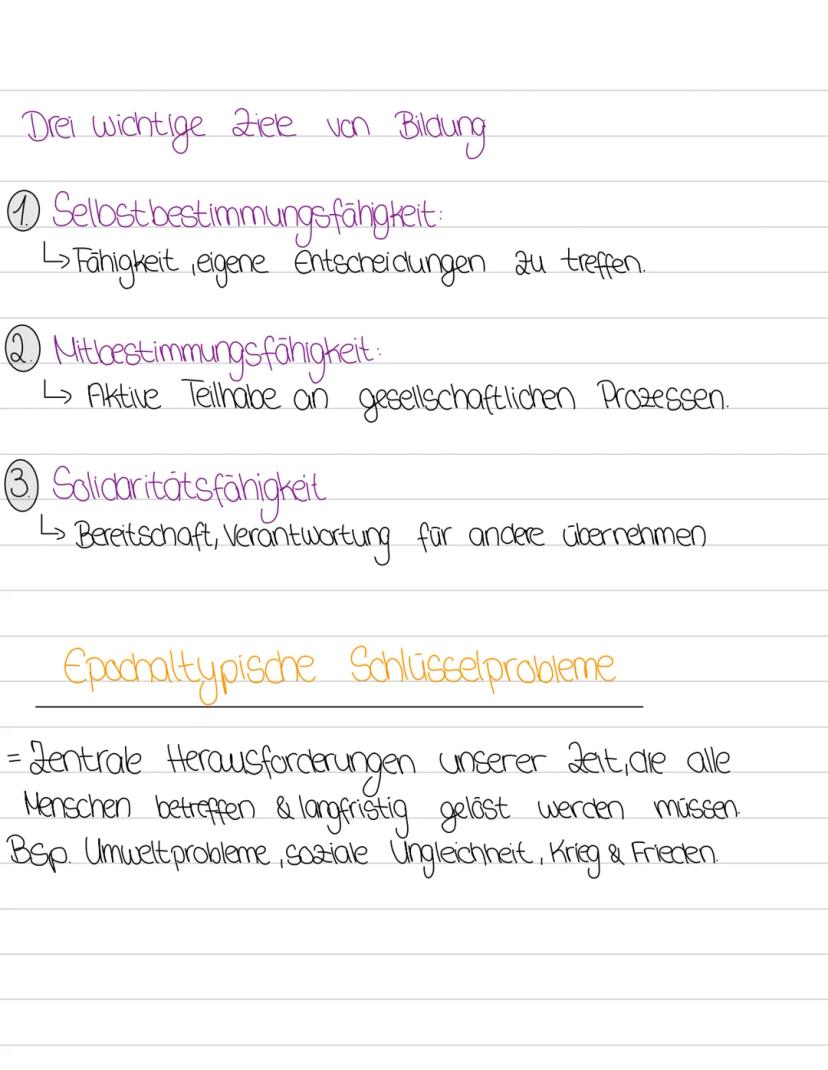 Drei wichtige Ziele von Bildung
1. Selbstbestimmungsfähigkeit:
↳ Fähigkeit, eigene Entscheidungen zu treffen.
2. Mitbestimmungsfähigkeit:
↳ Aktive Teilhabe an gesellschaftlichen Prozessen.
3. Solidaritätsfähigkeit
↳ Bereitschaft, Verantwortung für andere übernehmen
Epochaltypische Schlüsselprobleme
= Zentrale Herausforderungen unserer Zeit, die alle
Menschen betreffen & langfristig gelöst werden müssen.
Bsp. Umweltprobleme, soziale Ungleichheit, Krieg & Frieden.